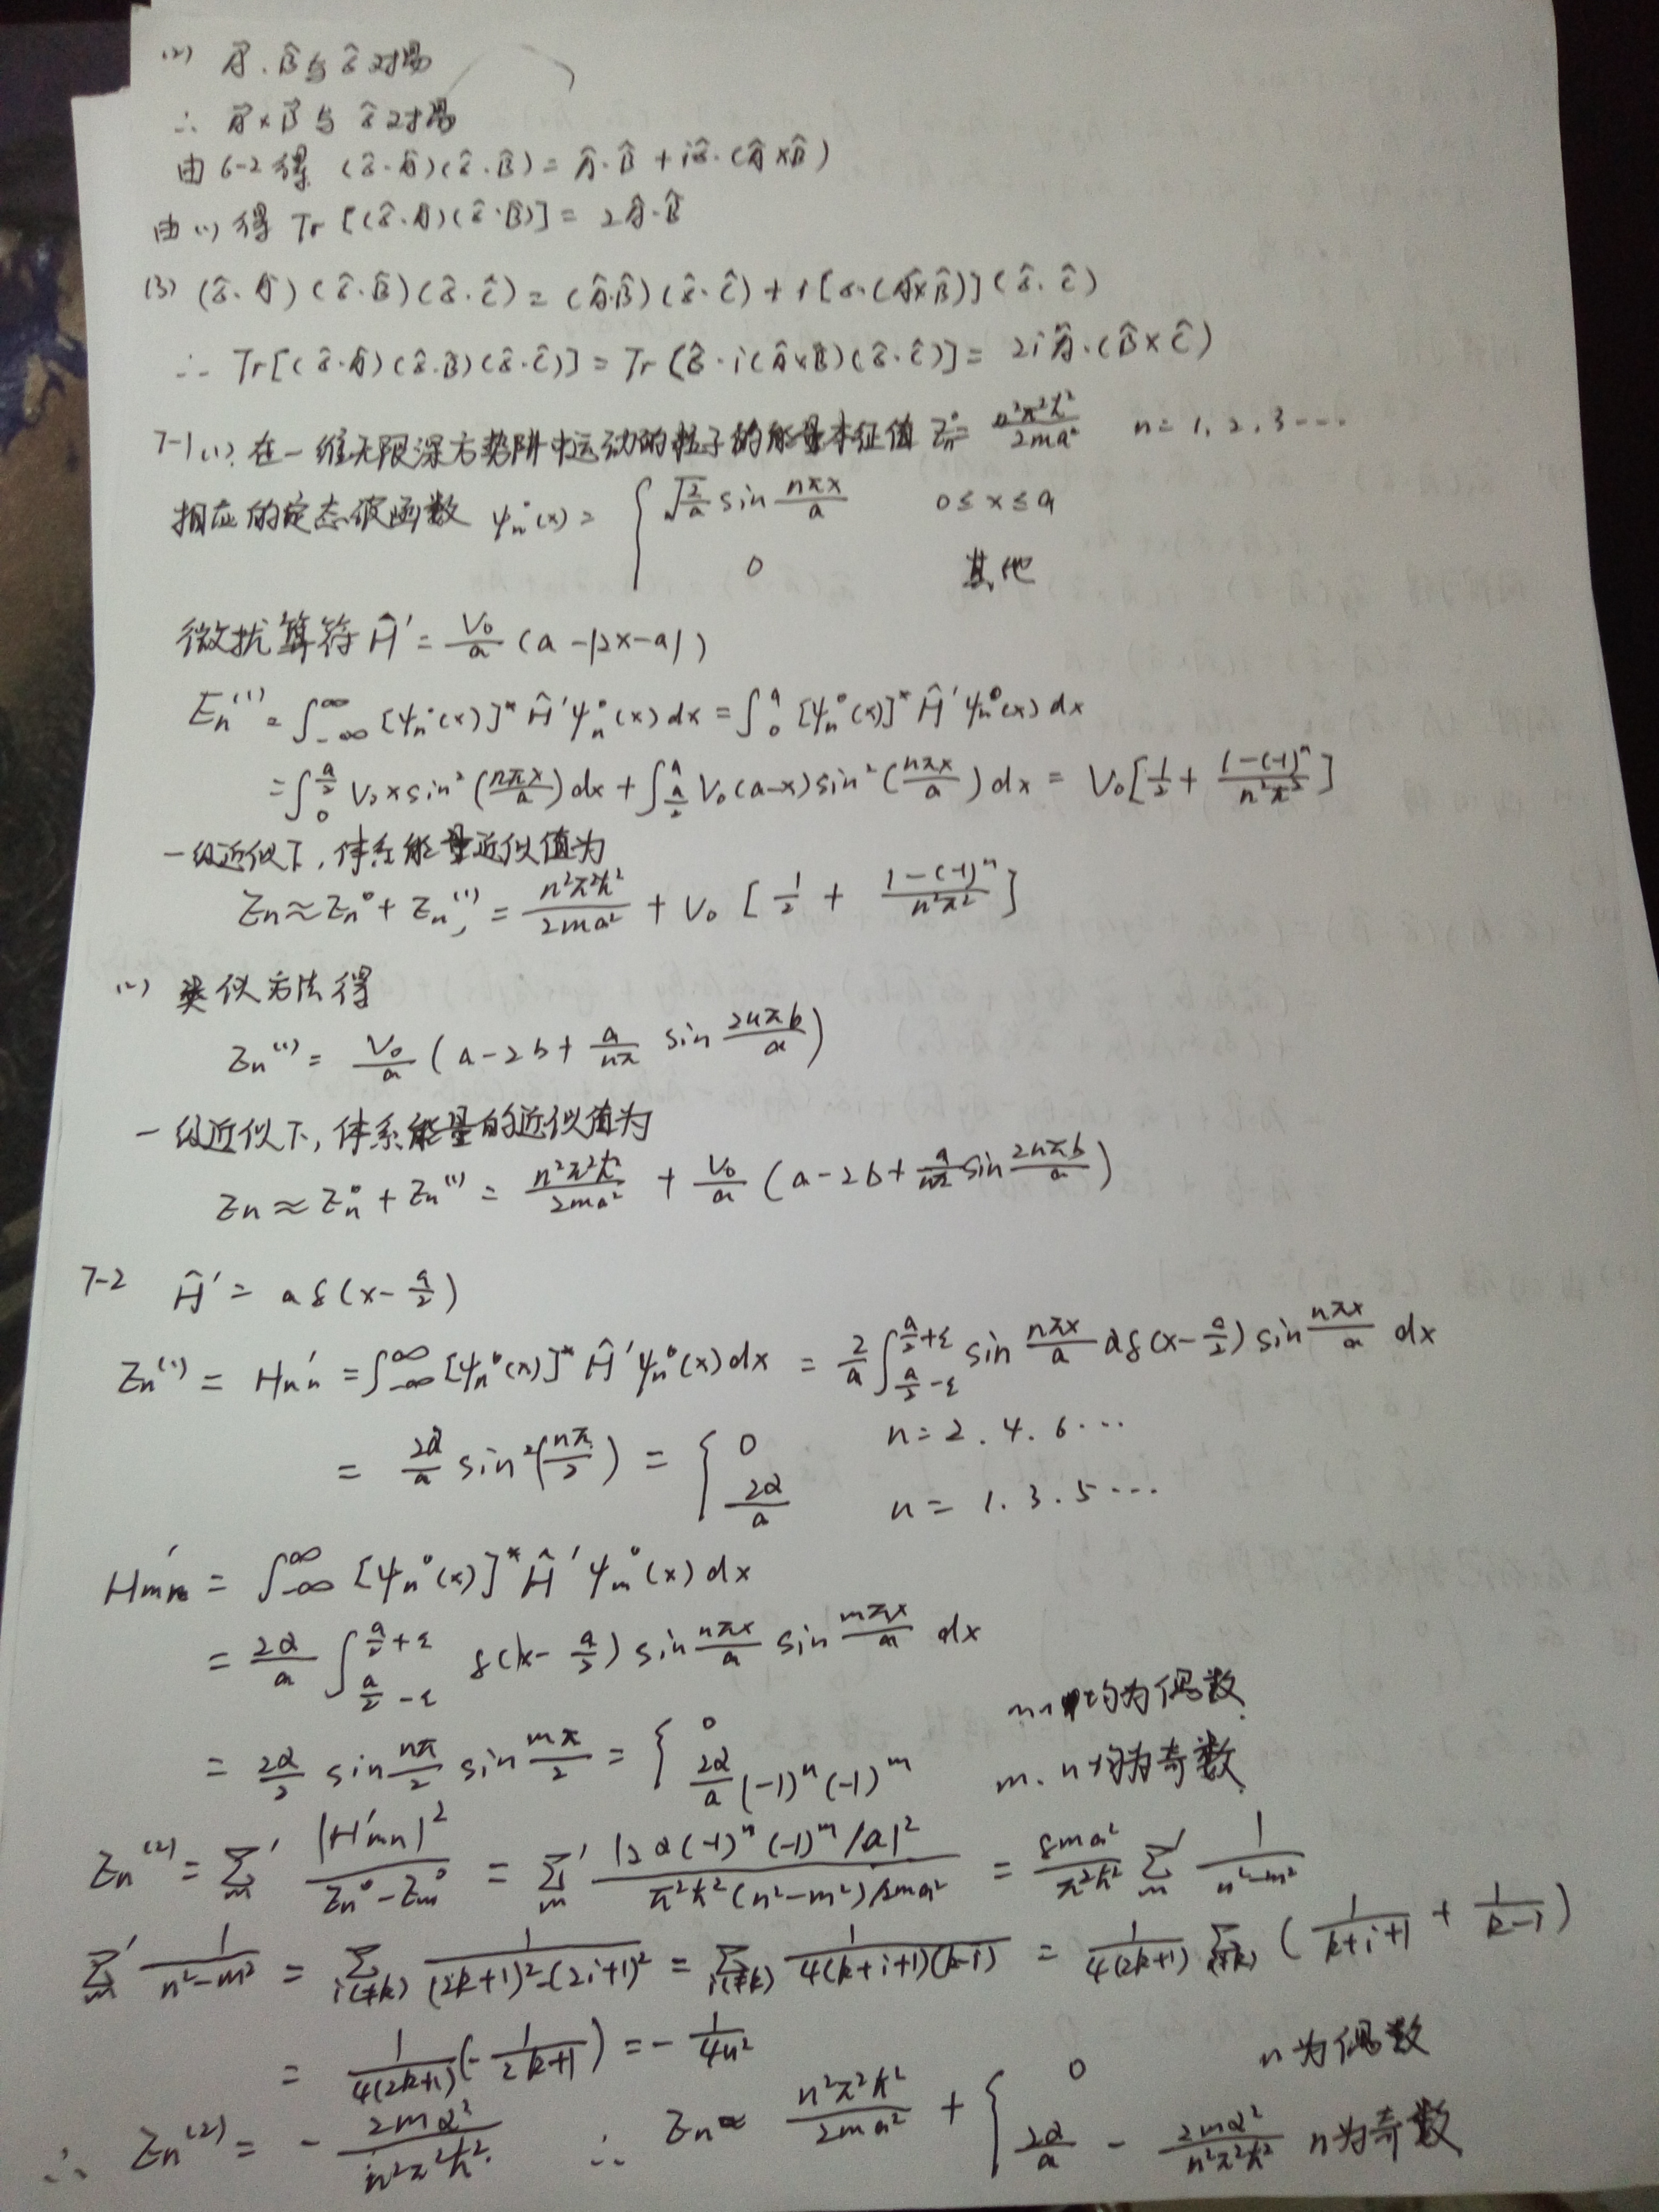 (2) Â、B̂与σ̂对易
∴ Â×B̂ 与 σ̂对易
由6-2得 (σ̂·Â)(σ̂·B̂) = Â·B̂ + iσ̂·(Â×B̂)
由(1)得 Tr[(σ̂·Â)(σ̂·B̂)] = 2Â·B̂
(3) (σ̂·Â)(σ̂·B̂)(σ̂·Ĉ) = (Â·B̂)(σ̂·Ĉ) + i[σ·(Â×B̂)](σ̂·Ĉ)
∴ Tr[(σ̂·Â)(σ̂·B̂)(σ̂·Ĉ)] = Tr[σ̂·i(Â×B̂)(σ̂·Ĉ)] = 2iÂ·(B̂×Ĉ)
7-1(1).在一维无限深方势阱中运动的粒子的能量本征值 Eₙ⁰ = n²π²ħ²/2ma² n=1,2,3…
相应的定态波函数 ψₙ⁰(x) = { √(2/a) sin nπx/a 0≤x≤a
0 其他
微扰算符 Ĥ′ = V₀/a (a-|2x-a|)
Eₙ⁽¹⁾ = ∫_{-∞}^{∞} [ψₙ⁰(x)]* Ĥ′ψₙ⁰(x)dx = ∫₀^a [ψₙ⁰(x)]* Ĥ′ψₙ⁰(x)dx
= ∫₀^{a/2} V₀x sin²(nπx/a)dx + ∫_{a/2}^{a} V₀(a-x)sin²(nπx/a)dx = V₀[1/2 + (1-(-1)ⁿ)/n²π²]
一级近似下,体系能量近似值为
Eₙ≈Eₙ⁰+Eₙ⁽¹⁾ = n²π²ħ²/2ma² + V₀[1/2 + (1-(-1)ⁿ)/n²π²]
(2) 类似方法得
Eₙ⁽¹⁾ = V₀/a (a-2b+ a/nπ sin 2nπb/a)
一级近似下,体系能量的近似值为
Eₙ≈Eₙ⁰+Eₙ⁽¹⁾ = n²π²ħ²/2ma² + V₀/a (a-2b+ a/nπ sin 2nπb/a)
7-2 Ĥ′ = aδ(x-a/2)
Eₙ⁽¹⁾ = H′ₙₙ = ∫_{-∞}^{∞} [ψₙ⁰(x)]* Ĥ′ψₙ⁰(x)dx = 2/a ∫_{a/2-ε}^{a/2+ε} sin nπx/a αδ(x-a/2) sin nπx/a dx
= 2α/a sin²(nπ/2) = { 0 n=2.4.6…
2α/a n=1.3.5…
H′ₘₙ = ∫_{-∞}^{∞} [ψₙ⁰(x)]* Ĥ′ψₘ⁰(x)dx
= 2α/a ∫_{a/2-ε}^{a/2+ε} δ(x-a/2) sin nπx/a sin mπx/a dx
= 2α/2 sin nπ/2 sin mπ/2 = { 0 m、n均为偶数
2α/a (-1)ⁿ(-1)ᵐ m、n均为奇数
Eₙ⁽²⁾ = Σ′ₘ |H′ₘₙ|²/(Eₙ⁰-Eₘ⁰) = Σ′ₘ |2α(-1)ⁿ(-1)ᵐ/a|²/(π²ħ²(n²-m²)/2ma²) = 8mα²/π²ħ² Σ′ₘ 1/(n²-m²)
Σ′ₘ 1/(n²-m²) = Σ_{i(≠k)} 1/((2k+1)²-(2i+1)²) = Σ_{i(≠k)} 1/(4(k+i+1)(k-i)) = 1/(4(2k+1)) Σ_{i(≠k)} (1/(k+i+1) + 1/(k-i))
= 1/(4(2k+1)) (-1/(2k+1)) = -1/4n²
∴ Eₙ⁽²⁾ = -2mα²/n²π²ħ² ∴ Eₙ≈ n²π²ħ²/2ma² + { 0 n为偶数
2α/a - 2mα²/n²π²ħ² n为奇数